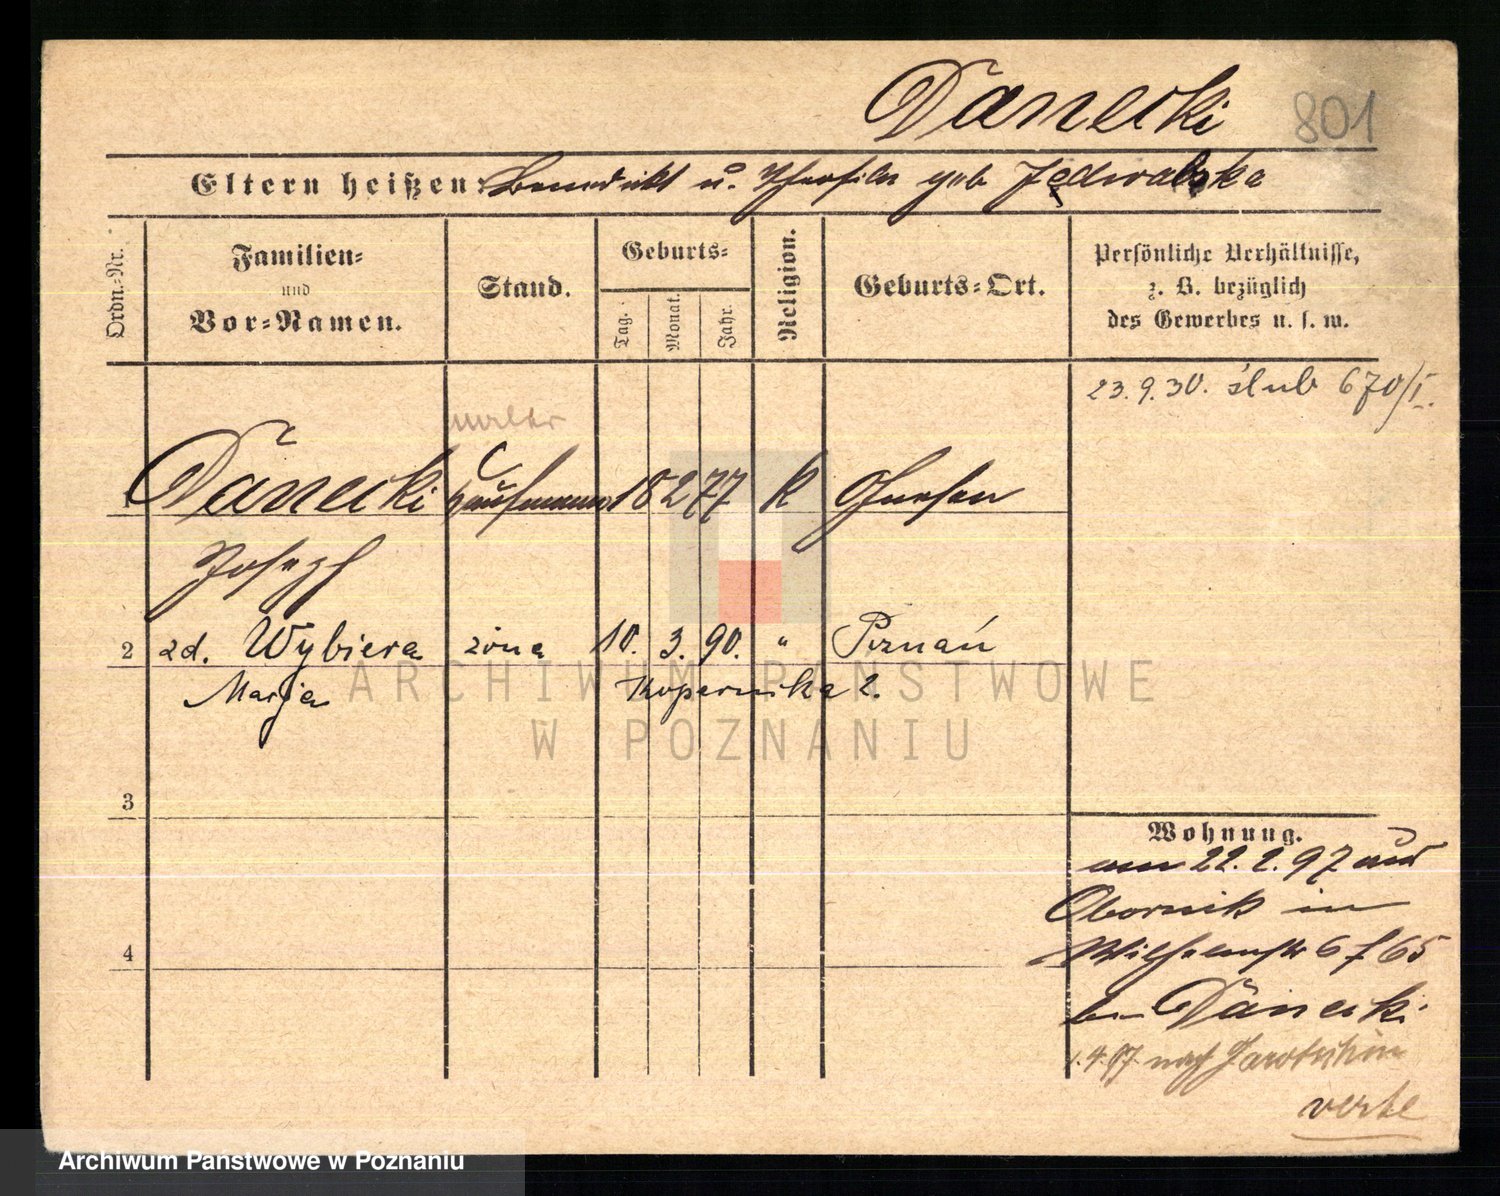 Danecki 801
Eltern heißen: Benedikt u. Theofila geb Jedwabska
Ordn.-Nr.
Familien-
und
Vor-Namen.
Stand.
Geburts-
Tag.
Monat.
Jahr.
Religion.
Geburts-Ort.
Persönliche Verhältnisse,
z. B. bezüglich
des Gewerbes u. s. w.
23.9.30. ślub 670/I.
maler
1 Danecki Kaufmann 18 2 77 K Gnesen
Joseph
2 zd. Wybiera żona 10. 3. 90. " Poznań
Marja Kopernika 2.
ARCHIWUM PAŃSTWOWE
W POZNANIU
3
Wohnung.
am 22.2.97 aus
Obornik in
Wilhelmstr 6 f 65
bei Danecki
4
1.4.97 nach Jarotschin
verte
Archiwum Państwowe w Poznaniu